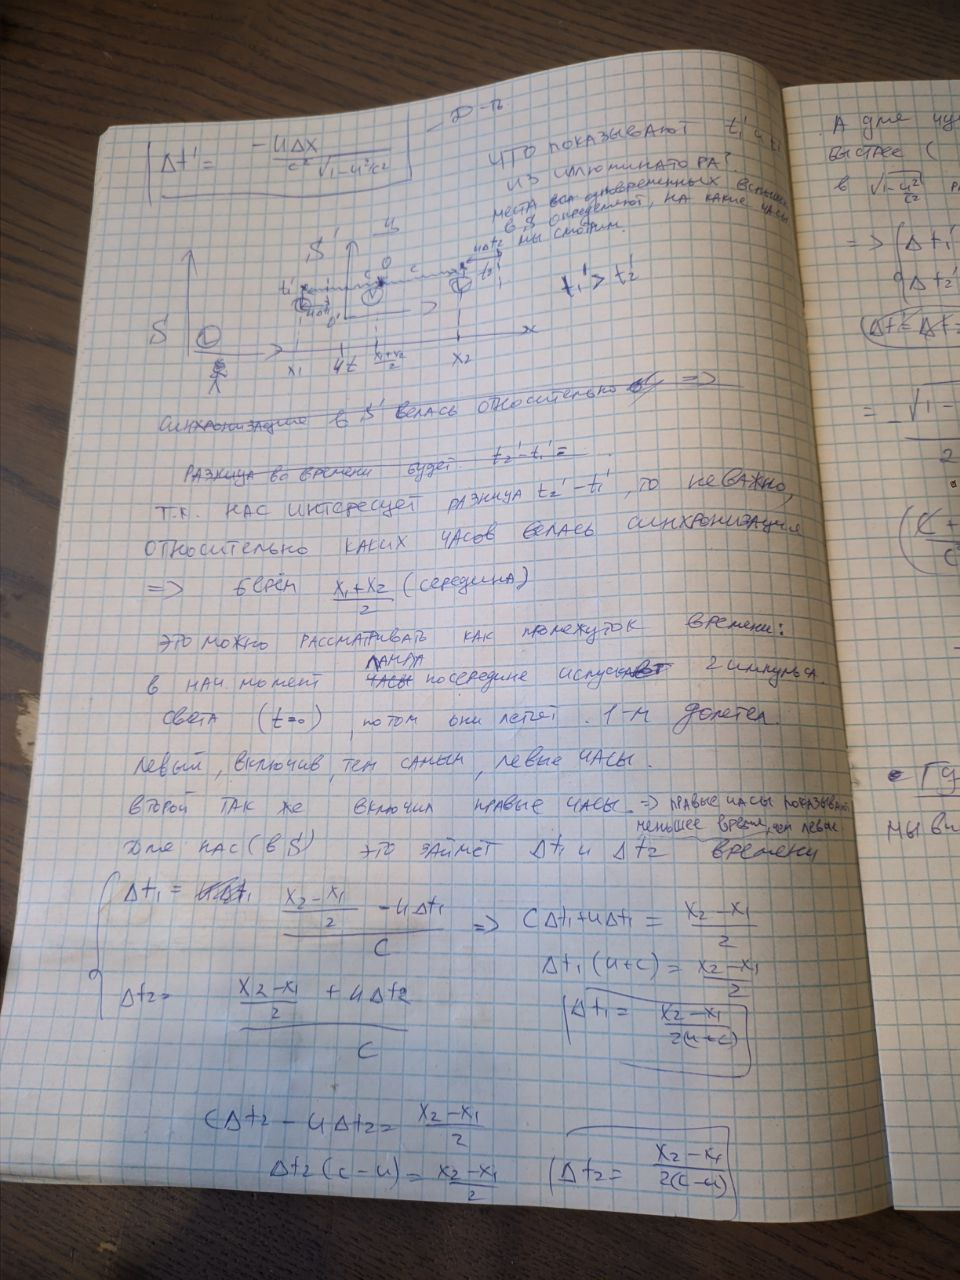 Δt' = -uΔx / c²√1-u²/c²
Д-ть
ЧТО ПОКАЗЫВАЮТ t₁' и t₂'
ИЗ ИЛЛЮМИНАТОРА?
МЕСТА ОДНОВРЕМЕННЫХ ВСПЫШЕК
в S ОПРЕДЕЛЯЮТ, НА КАКИЕ ЧАСЫ
МЫ СМОТРИМ.
t₁' > t₂'
S' u
uΔt₂
t₁' c 0 c t₂'
uΔt₁ 0'
S
x₁ ut x₁+x₂/2 x₂ x
СИНХРОНИЗАЦИЯ в S' ВЕЛАСЬ ОТНОСИТЕЛЬНО =>
РАЗНИЦА ВО ВРЕМЕНИ БУДЕТ: t₂'-t₁' =
Т.К. НАС ИНТЕРЕСУЕТ РАЗНИЦА t₂'-t₁', ТО НЕ ВАЖНО,
ОТНОСИТЕЛЬНО КАКИХ ЧАСОВ ВЕЛАСЬ СИНХРОНИЗАЦИЯ
=> БЕРЁМ x₁+x₂/2 (СЕРЕДИНА)
ЭТО МОЖНО РАССМАТРИВАТЬ КАК ПРОМЕЖУТОК ВРЕМЕНИ:
ЛАМПА
В НАЧ. МОМЕНТ ЧАСЫ ПОСЕРЕДИНЕ 2 ИМПУЛЬСА
СВЕТА (t=0), ПОТОМ ОНИ ЛЕТЯТ. 1-Й ДОЛЕТЕЛ
ЛЕВЫЙ, ВКЛЮЧИВ, ТЕМ САМЫМ, ЛЕВЫЕ ЧАСЫ.
ВТОРОЙ ТАК ЖЕ ВКЛЮЧИЛ ПРАВЫЕ ЧАСЫ. => ПРАВЫЕ ЧАСЫ ПОКАЗЫВАЮТ
МЕНЬШЕЕ ВРЕМЯ, ЧЕМ ЛЕВЫЕ
ДЛЯ НАС (В S) ЭТО ЗАЙМЁТ Δt₁ и Δt₂ ВРЕМЕНИ
Δt₁ = (x₂-x₁/2 - uΔt₁)/c => cΔt₁+uΔt₁ = x₂-x₁/2
Δt₁(u+c) = x₂-x₁/2
Δt₂ = (x₂-x₁/2 + uΔt₂)/c
Δt₁ = x₂-x₁/2(u+c)
cΔt₂ - uΔt₂ = x₂-x₁/2
Δt₂(c-u) = x₂-x₁/2
Δt₂ = x₂-x₁/2(c-u)
А для
БЫСТРЕЕ (
в √1-u²/c²
=> {Δt₁'
Δt₂'
(Δt' = Δt
= √1-
2
(c+
c
• 
МЫ